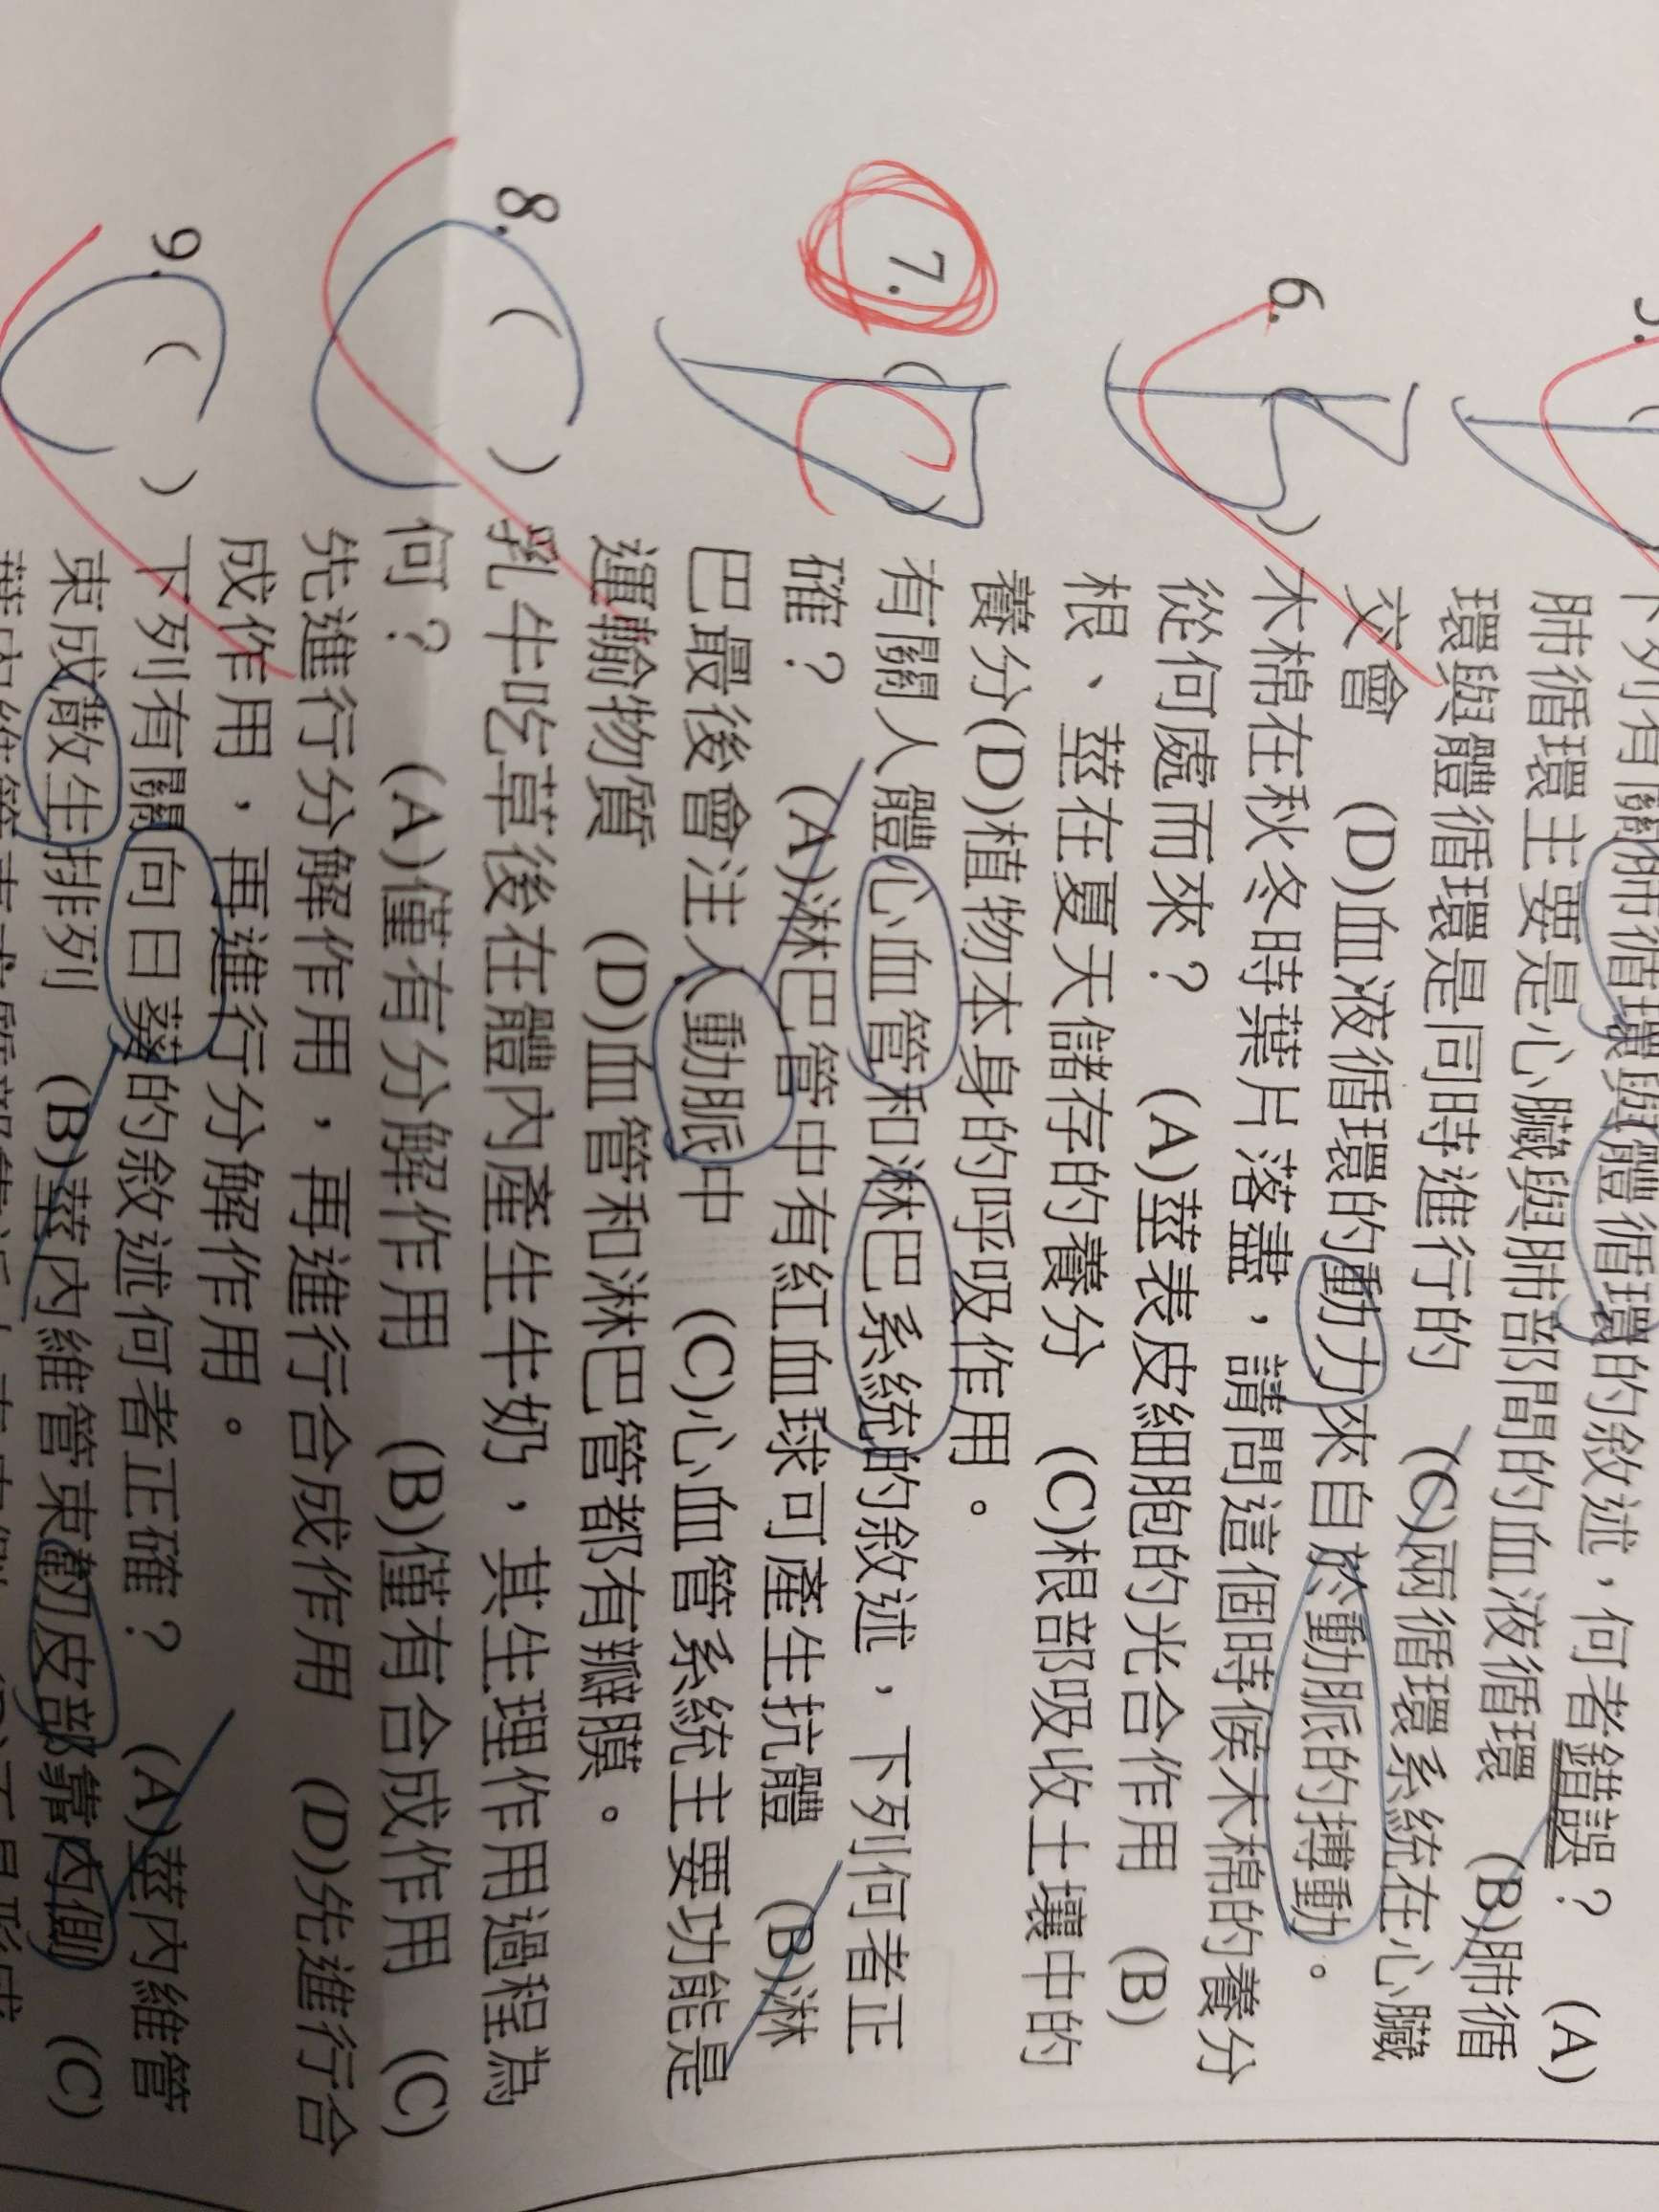 5.(
下列有關肺循環與體循環的敘述，何者錯誤？ (A)
肺循環主要是心臟與肺部間的血液循環 (B)肺循
環與體循環是同時進行的 (C)兩循環系統在心臟
交會 (D)血液循環的動力來自於動脈的搏動。
6. B ) 木棉在秋冬時葉片落盡，請問這個時候木棉的養分
從何處而來？ (A)莖表皮細胞的光合作用 (B)
根、莖在夏天儲存的養分 (C)根部吸收土壤中的
養分(D)植物本身的呼吸作用。
7. ( D C ) 有關人體心血管和淋巴系統的敘述，下列何者正
確？ (A)淋巴管中有紅血球可產生抗體 (B)淋
巴最後會注入動脈中 (C)心血管系統主要功能是
運輸物質 (D)血管和淋巴管都有瓣膜。
8. ( C ) 乳牛吃草後在體內產生牛奶，其生理作用過程為
何？ (A)僅有分解作用 (B)僅有合成作用 (C)
先進行分解作用，再進行合成作用 (D)先進行合
成作用，再進行分解作用。
9. ( C ) 下列有關向日葵的敘述何者正確？ (A)莖內維管
束成散生排列 (B)莖內維管束韌皮部靠內側 (C)